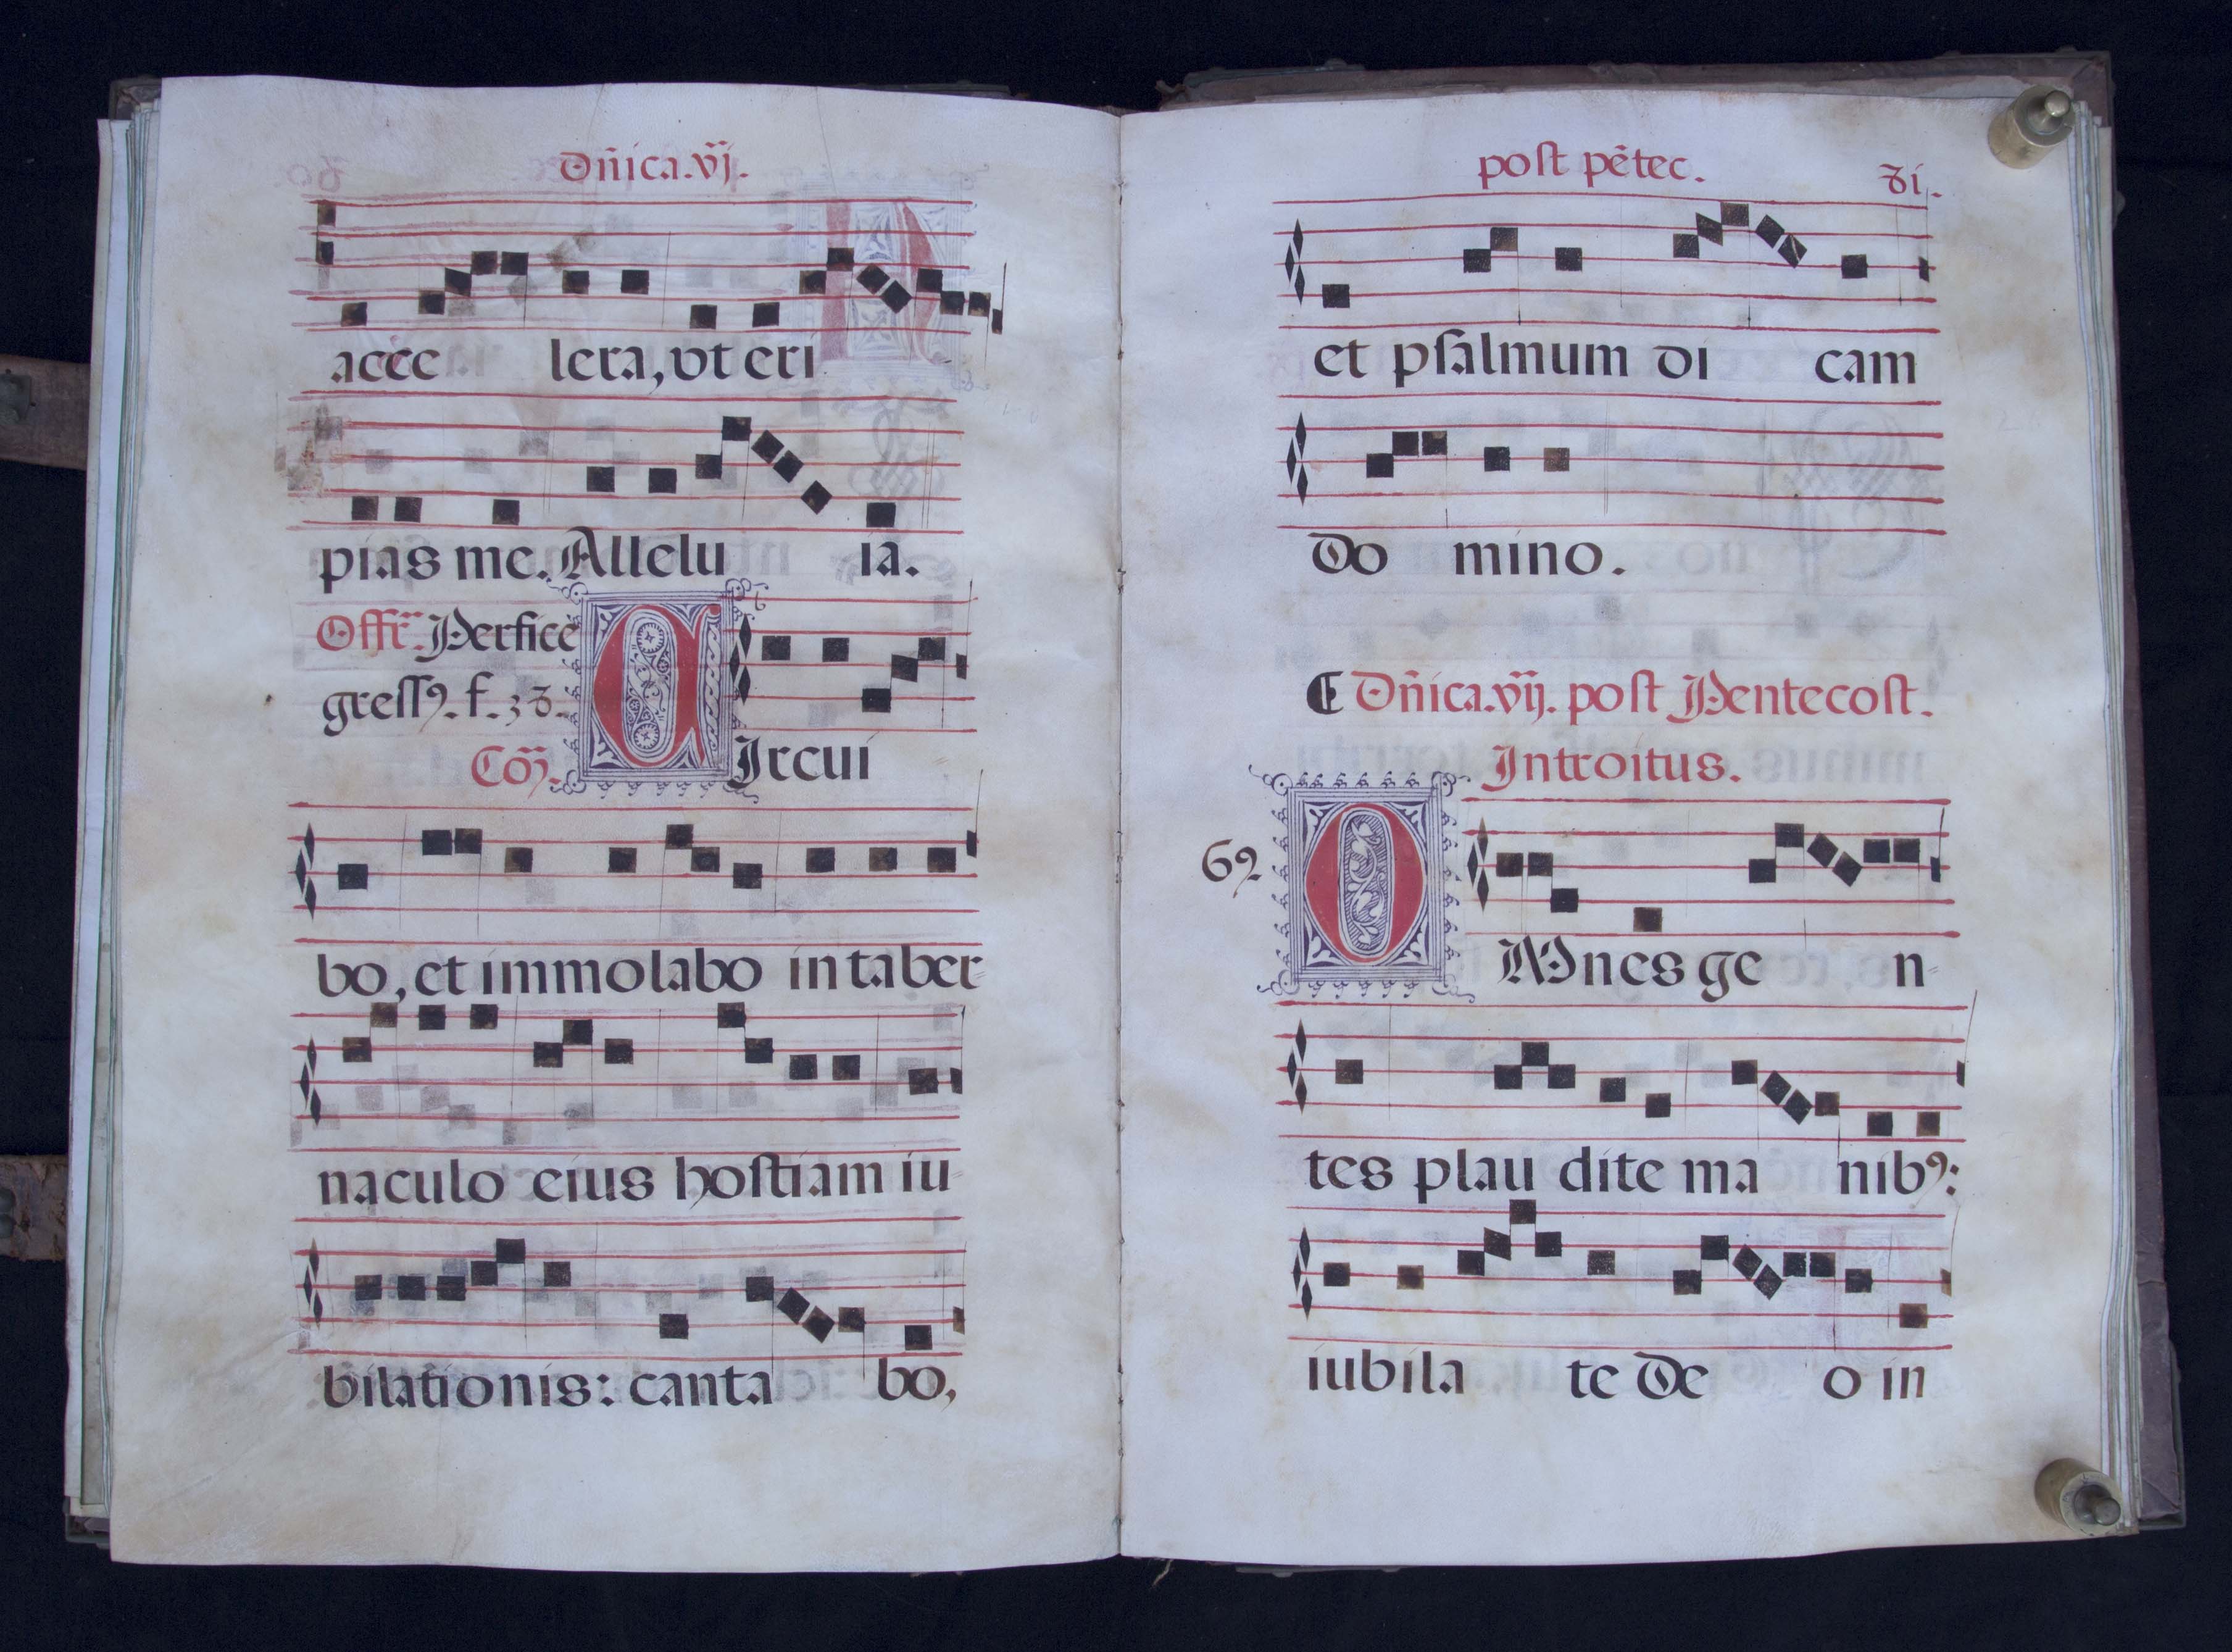 Dñica.vj.
accele lera, vt eri
pias me. Allelu ia.
Offr̃. Perfice
gressꝰ. f. 38.
Cõꝫ. CIrcui
bo, et immolabo in taber
naculo eius hostiam iu
bilationis: canta bo,
post pẽtec. 81.
et psalmum di cam
Do mino.
Dñica.vij. post Pentecost.
Introitus.
6ꝰ OMnes ge n
tes plau dite ma nibꝰ:
iubila te De o in